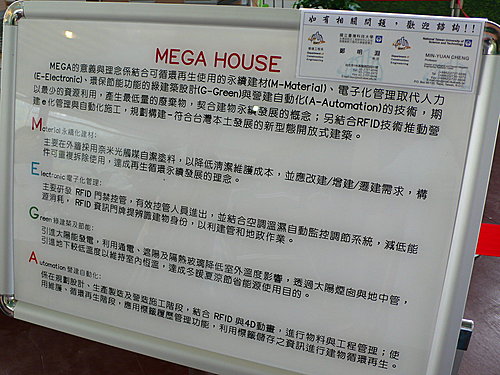 如有相關問題，歡迎諮詢!!
國立臺灣科技大學
鄭明淵
MIN-YUAN CHENG
MEGA HOUSE
MEGA的意義與理念係結合可循環再生使用的永續建材(M-Material)、電子化管理取代人力
(E-Electronic)、環保節能功能的綠建築設計(G-Green)與營建自動化(A-Automation)的技術，期
以最少的資源利用，產生最低量的廢棄物，契合建物永續發展的概念；另結合RFID技術推動營
建e化管理與自動化施工，規劃構建一符合台灣本土發展的新型態開放式建築。
Material永續化建材:
主要在外牆採用奈米光觸媒自潔塗料，以降低清潔維護成本，並應改建/增建/遷建需求，構
件可重複拆除使用，達成再生循環永續發展的理念。
Electronic電子化管理:
主要研發 RFID 門禁控管，有效控管人員進出，並結合空調溫濕自動監控調節系統，減低能
源消耗，RFID 資訊門牌提辨識建物身份，以利建管和地政作業。
Green綠建築及節能:
引進太陽能發電，利用通風、遮陽及隔熱玻璃降低室外溫度影響，透過太陽煙囪與地中管，
引進地下較低溫度以維持室內恆溫，達成冬暖夏涼節省能源使用目的。
Automation營建自動化:
係在規劃設計、生產製造及營造施工階段，結合 RFID 與4D動畫，進行物料與工程管理；使
用維護、循環再生階段，應用標籤履歷管理功能，利用標籤儲存之資訊進行建物循環再生。